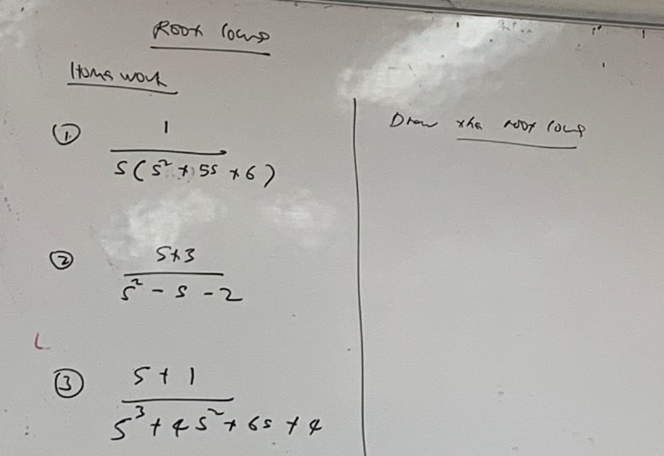 Root locus
Homework
① 1
s(s² + 5s + 6)
② s+3
s² - s - 2
③ s + 1
s³ + 4s² + 6s + 4
Draw the root locus